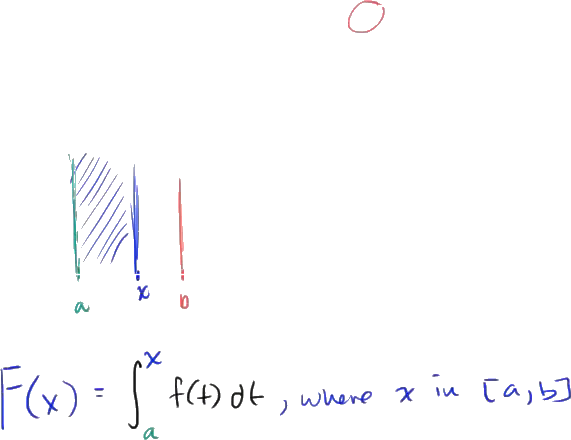 a x b
F(x) = ∫_a^x f(t) dt, where x in [a, b]